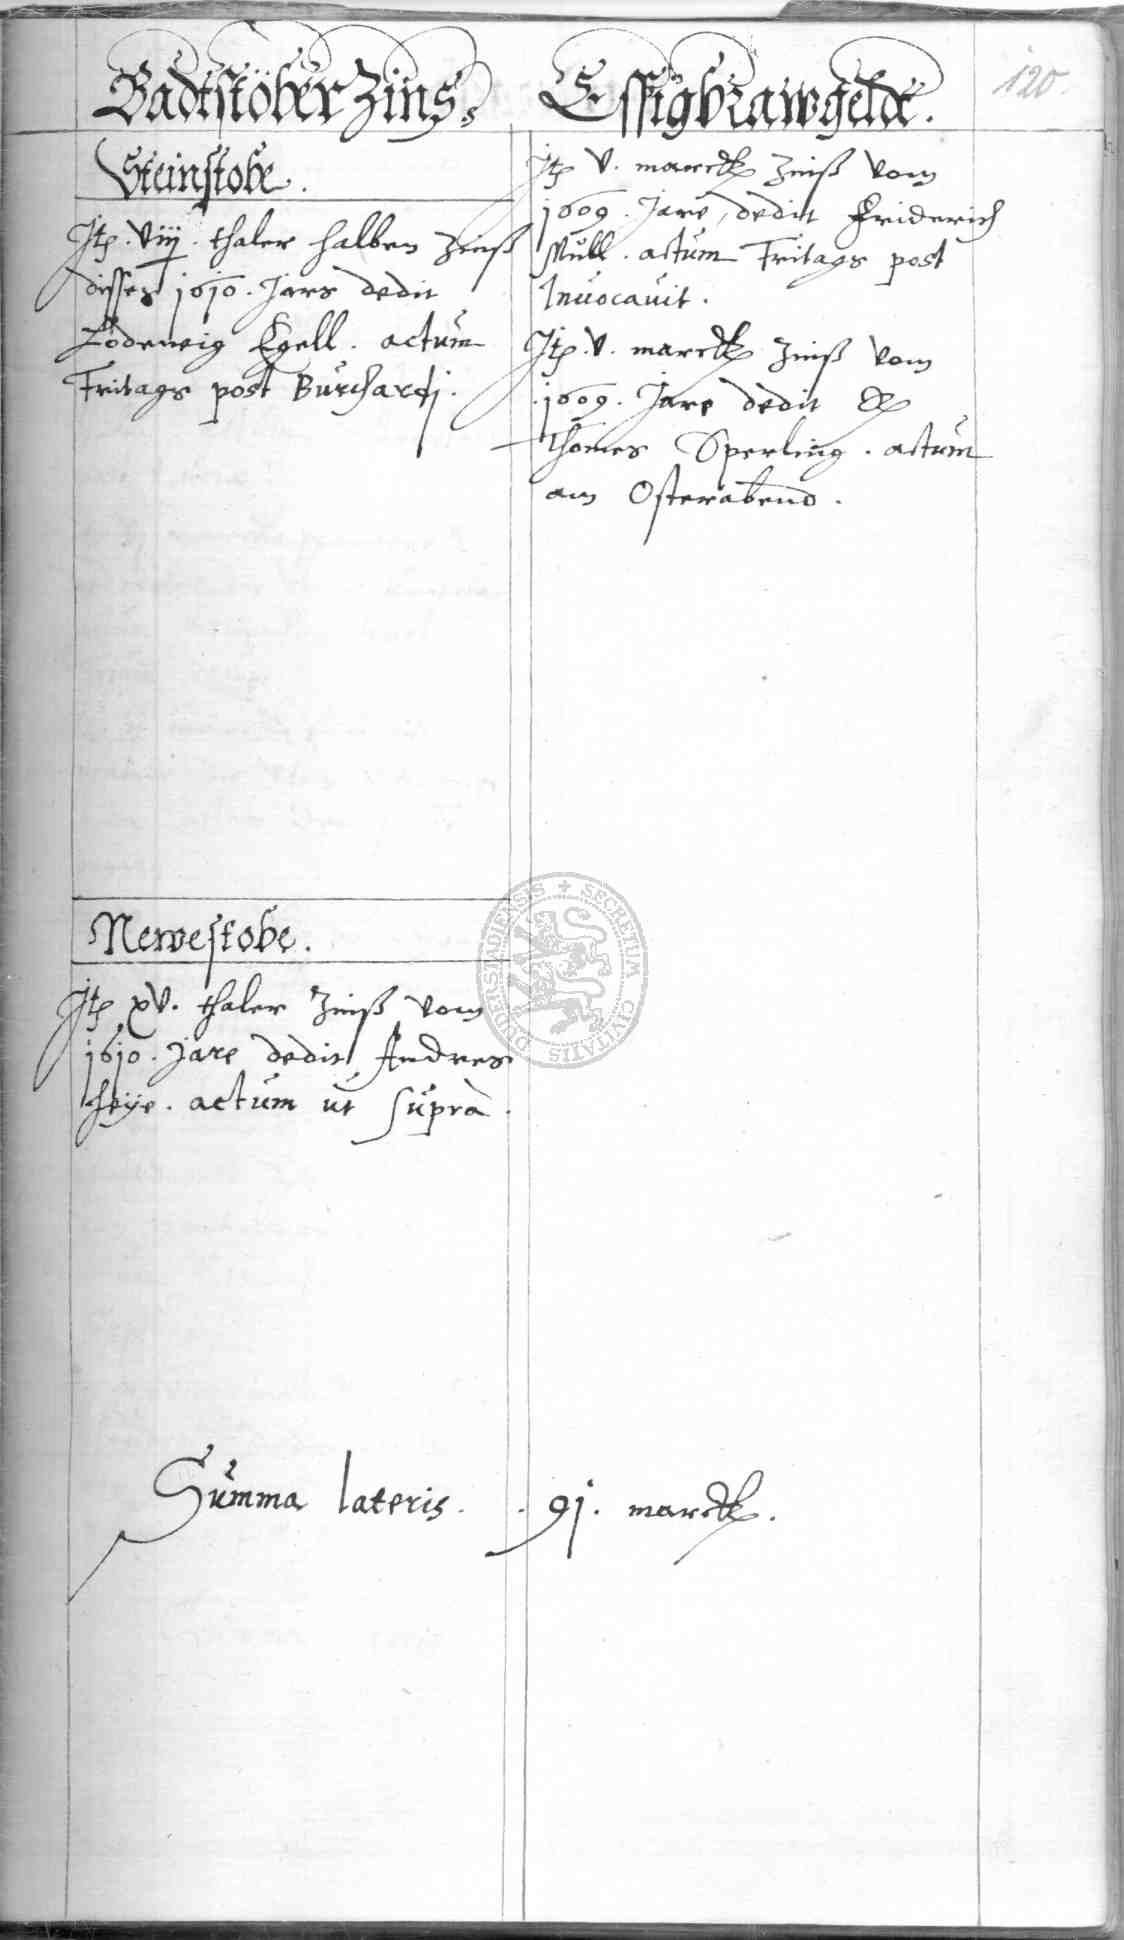 120.
Badtstöber Zins.
Steinstobe.
Jtem. viij. thaler halben Zinß
disses 1610. Jars dedit
Lodewig Egell. actum
Fritags post Burchardj.
Newestobe.
Jtem xv. thaler Zinß vom
1610. Jare dedit Andres
Heye. actum ut suprà.
Essigbrawgeldt.
Jtem v. marck Zinß vom
1609. Jare, dedit Friderich
Mull. actum Fritags post
Invocavit.
Jtem. v. marck Zinß vom
1609. Jare dedit
Thomes Sperling. actum
am Osterabend.
Summa lateris. 91. marck.
SECRETUM CIVITATIS DUDERSTADIENSIS